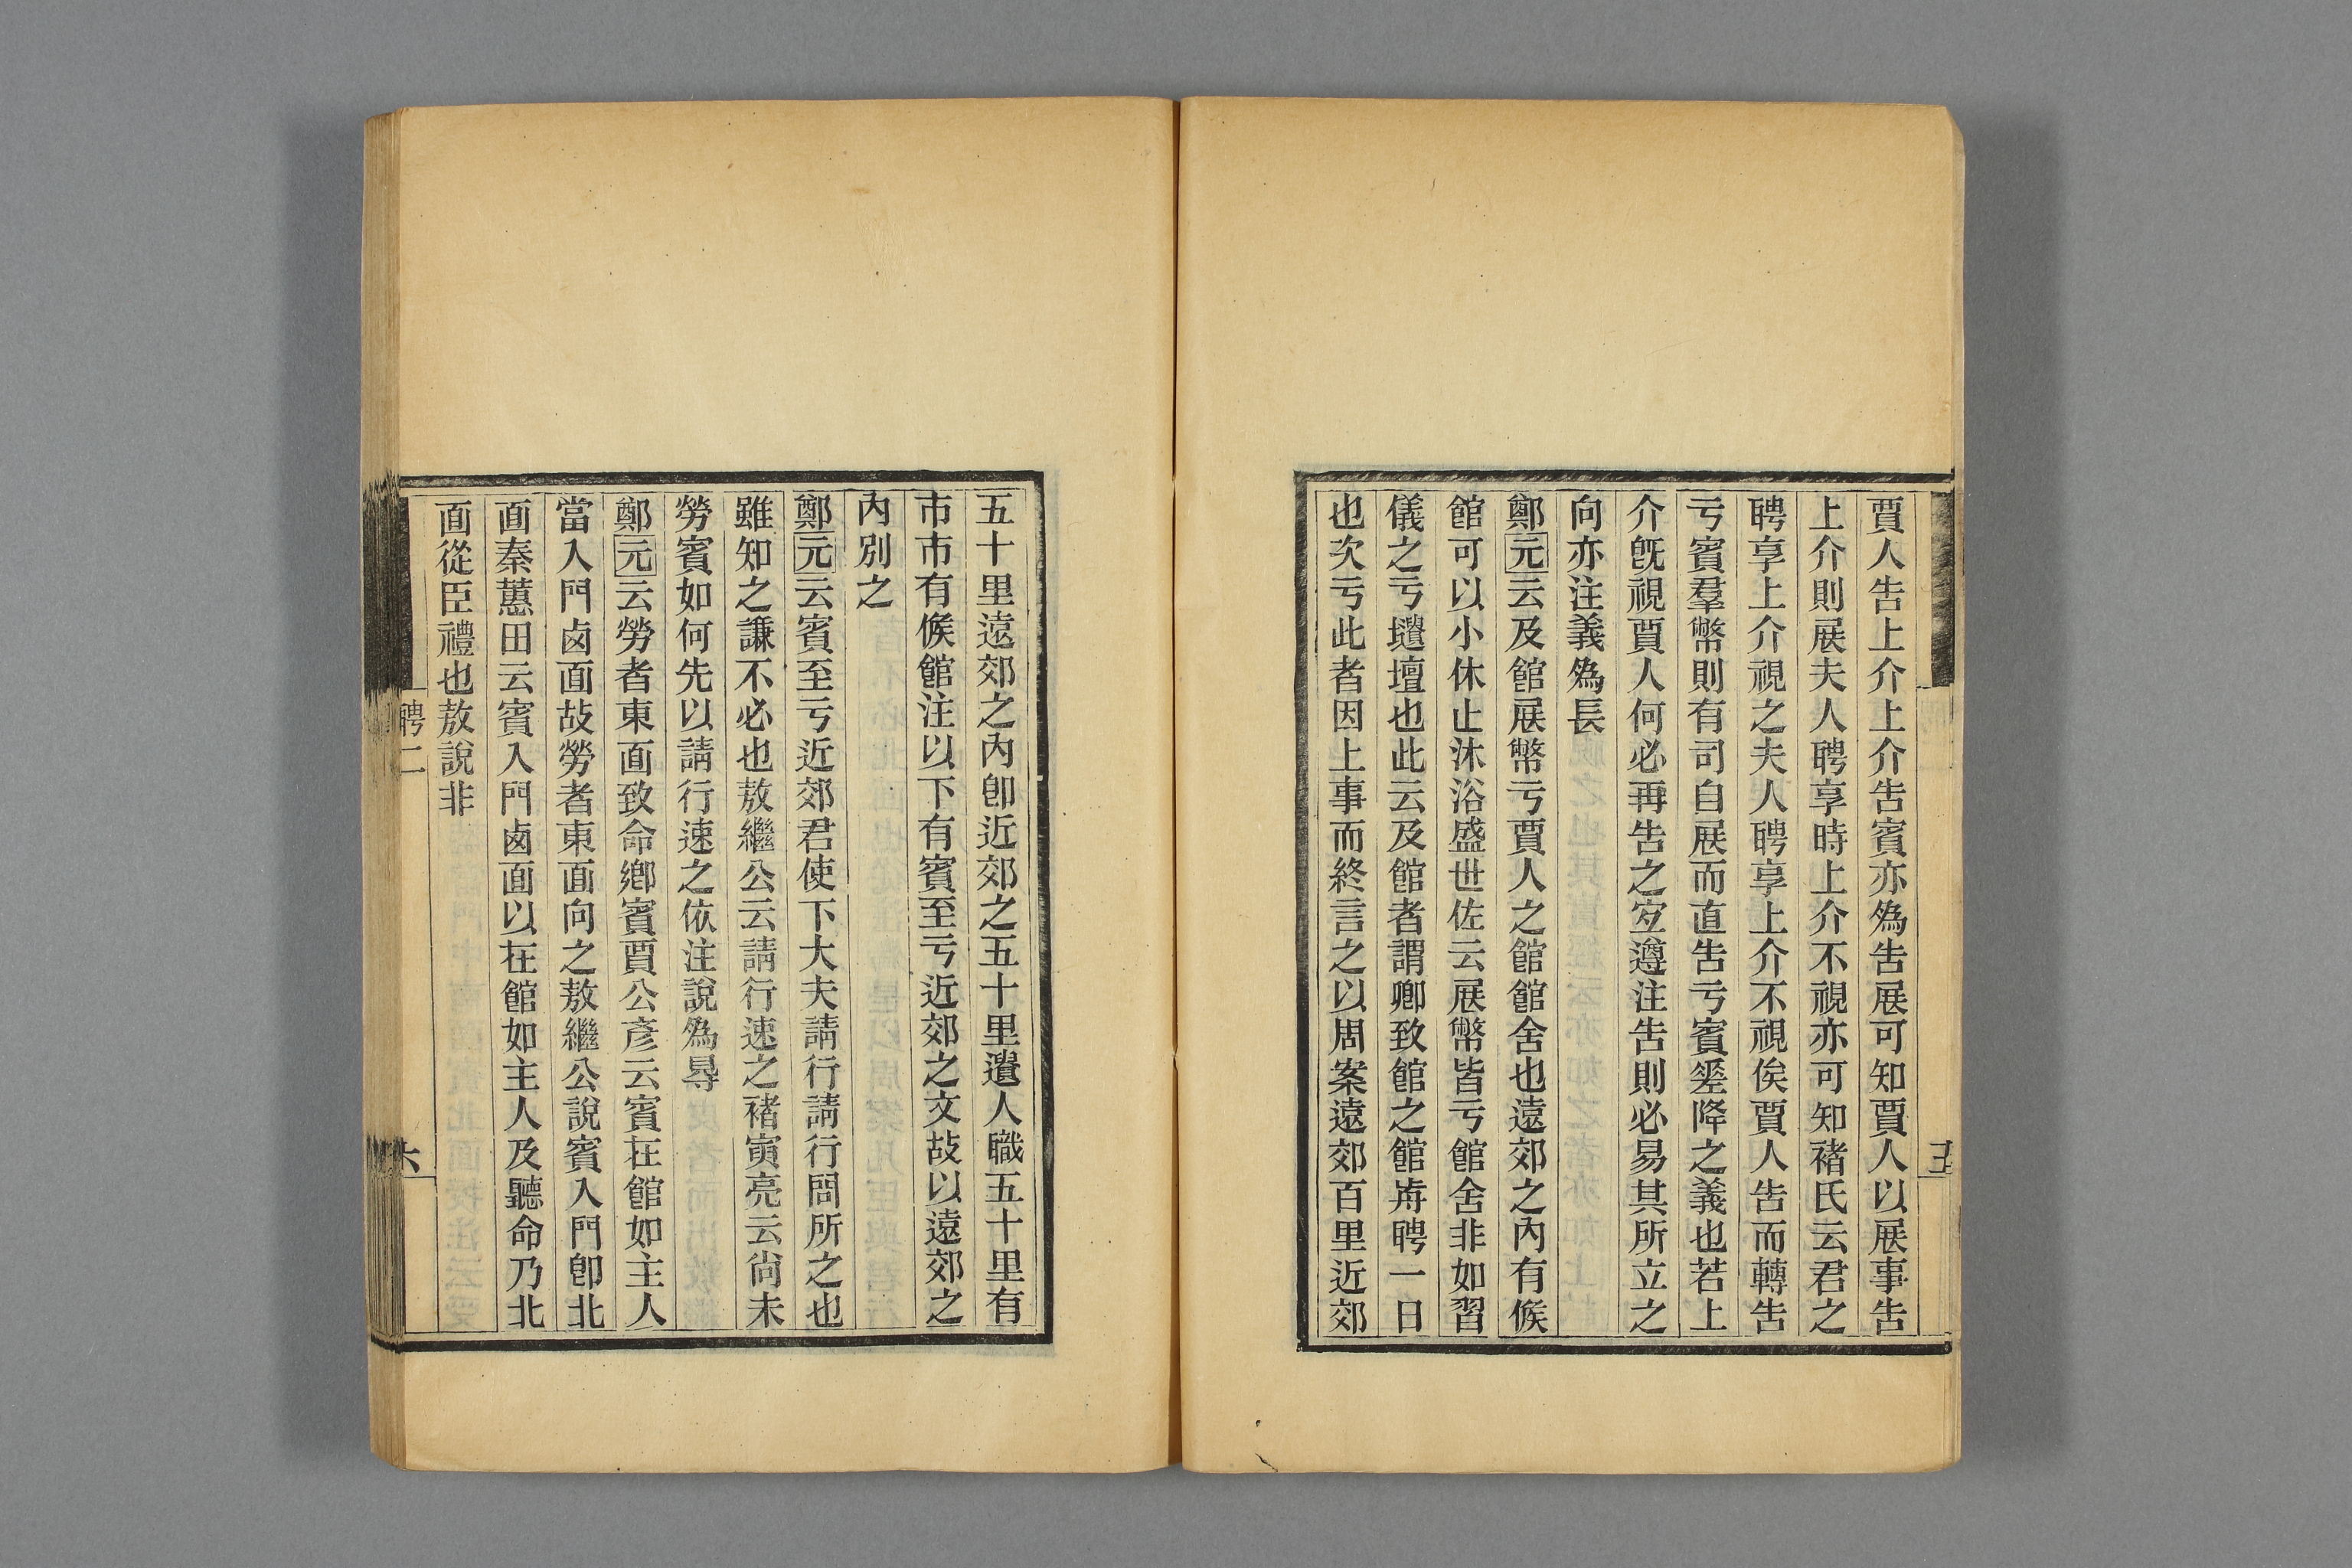 賈人告上介上介告賓亦爲告展可知賈人以展事告
上介則展夫人聘享時上介不視亦可知褚氏云君之
聘享上介視之夫人聘享上介不視俟賈人告而轉告
亏賓羣幣則有司自展而直告亏賓差降之義也若上
介旣視賈人何必再告之宐遵注告則必易其所立之
向亦注義爲長
鄭元云及館展幣亏賈人之館館舍也遠郊之內有候
館可以小休止沐浴盛世佐云展幣皆亏館舍非如習
儀之亏壝壇也此云及館者謂卿致館之館歬聘一日
也次亏此者因上事而終言之以周案遠郊百里近郊
五十里遠郊之內卽近郊之五十里遺人職五十里有
市市有候館注以下有賓至亏近郊之文故以遠郊之
內別之
鄭元云賓至亏近郊君使下大夫請行請行問所之也
雖知之謙不必也敖繼公云請行速之褚寅亮云尙未
勞賓如何先以請行速之依注說爲㝵
鄭元云勞者東面致命鄉賓賈公彥云賓在館如主人
當入門鹵面故勞者東面向之敖繼公說賓入門卽北
面秦蕙田云賓入門鹵面以在館如主人及聽命乃北
面從臣禮也敖說非
聘二
六